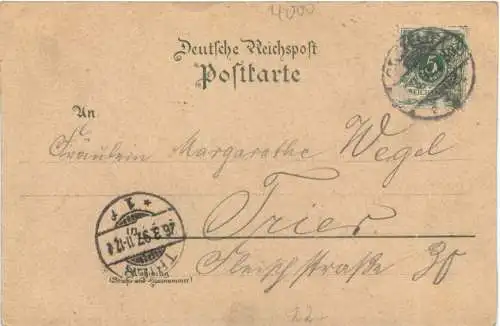 4000
Deutsche Reichspost
Postkarte
5
An
Fräulein Margarethe Wegel
Trier
Fleischstraße 30
TRIER
26.3.97.11-12
* 1 f
Wohnung
(Straße und Hausnummer)
22